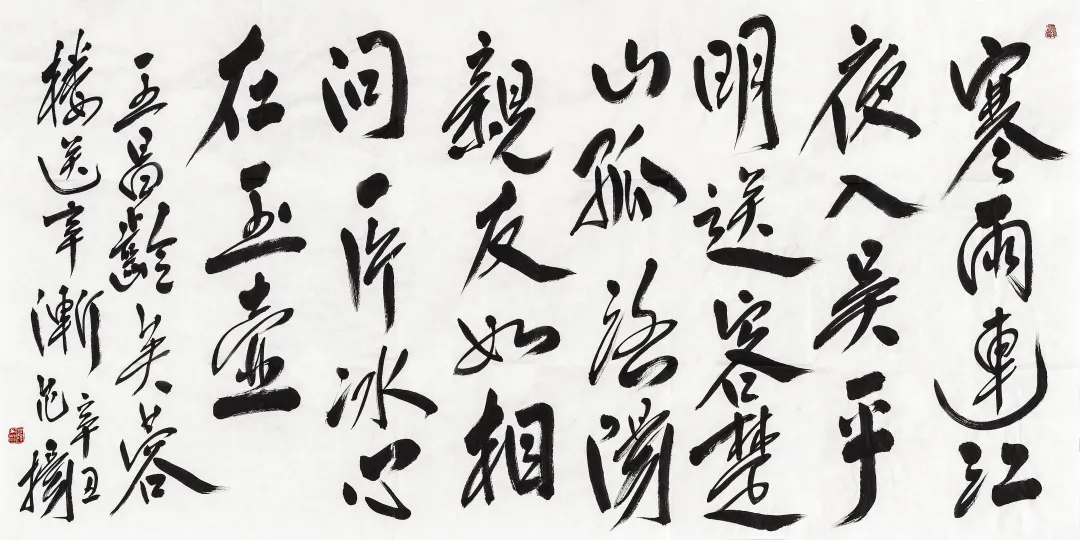 寒雨連江
夜入吴平
明送客楚
山孤洛陽
親友如相
問一片冰心
在玉壺
王昌齡芙蓉
樓送辛漸
辛丑